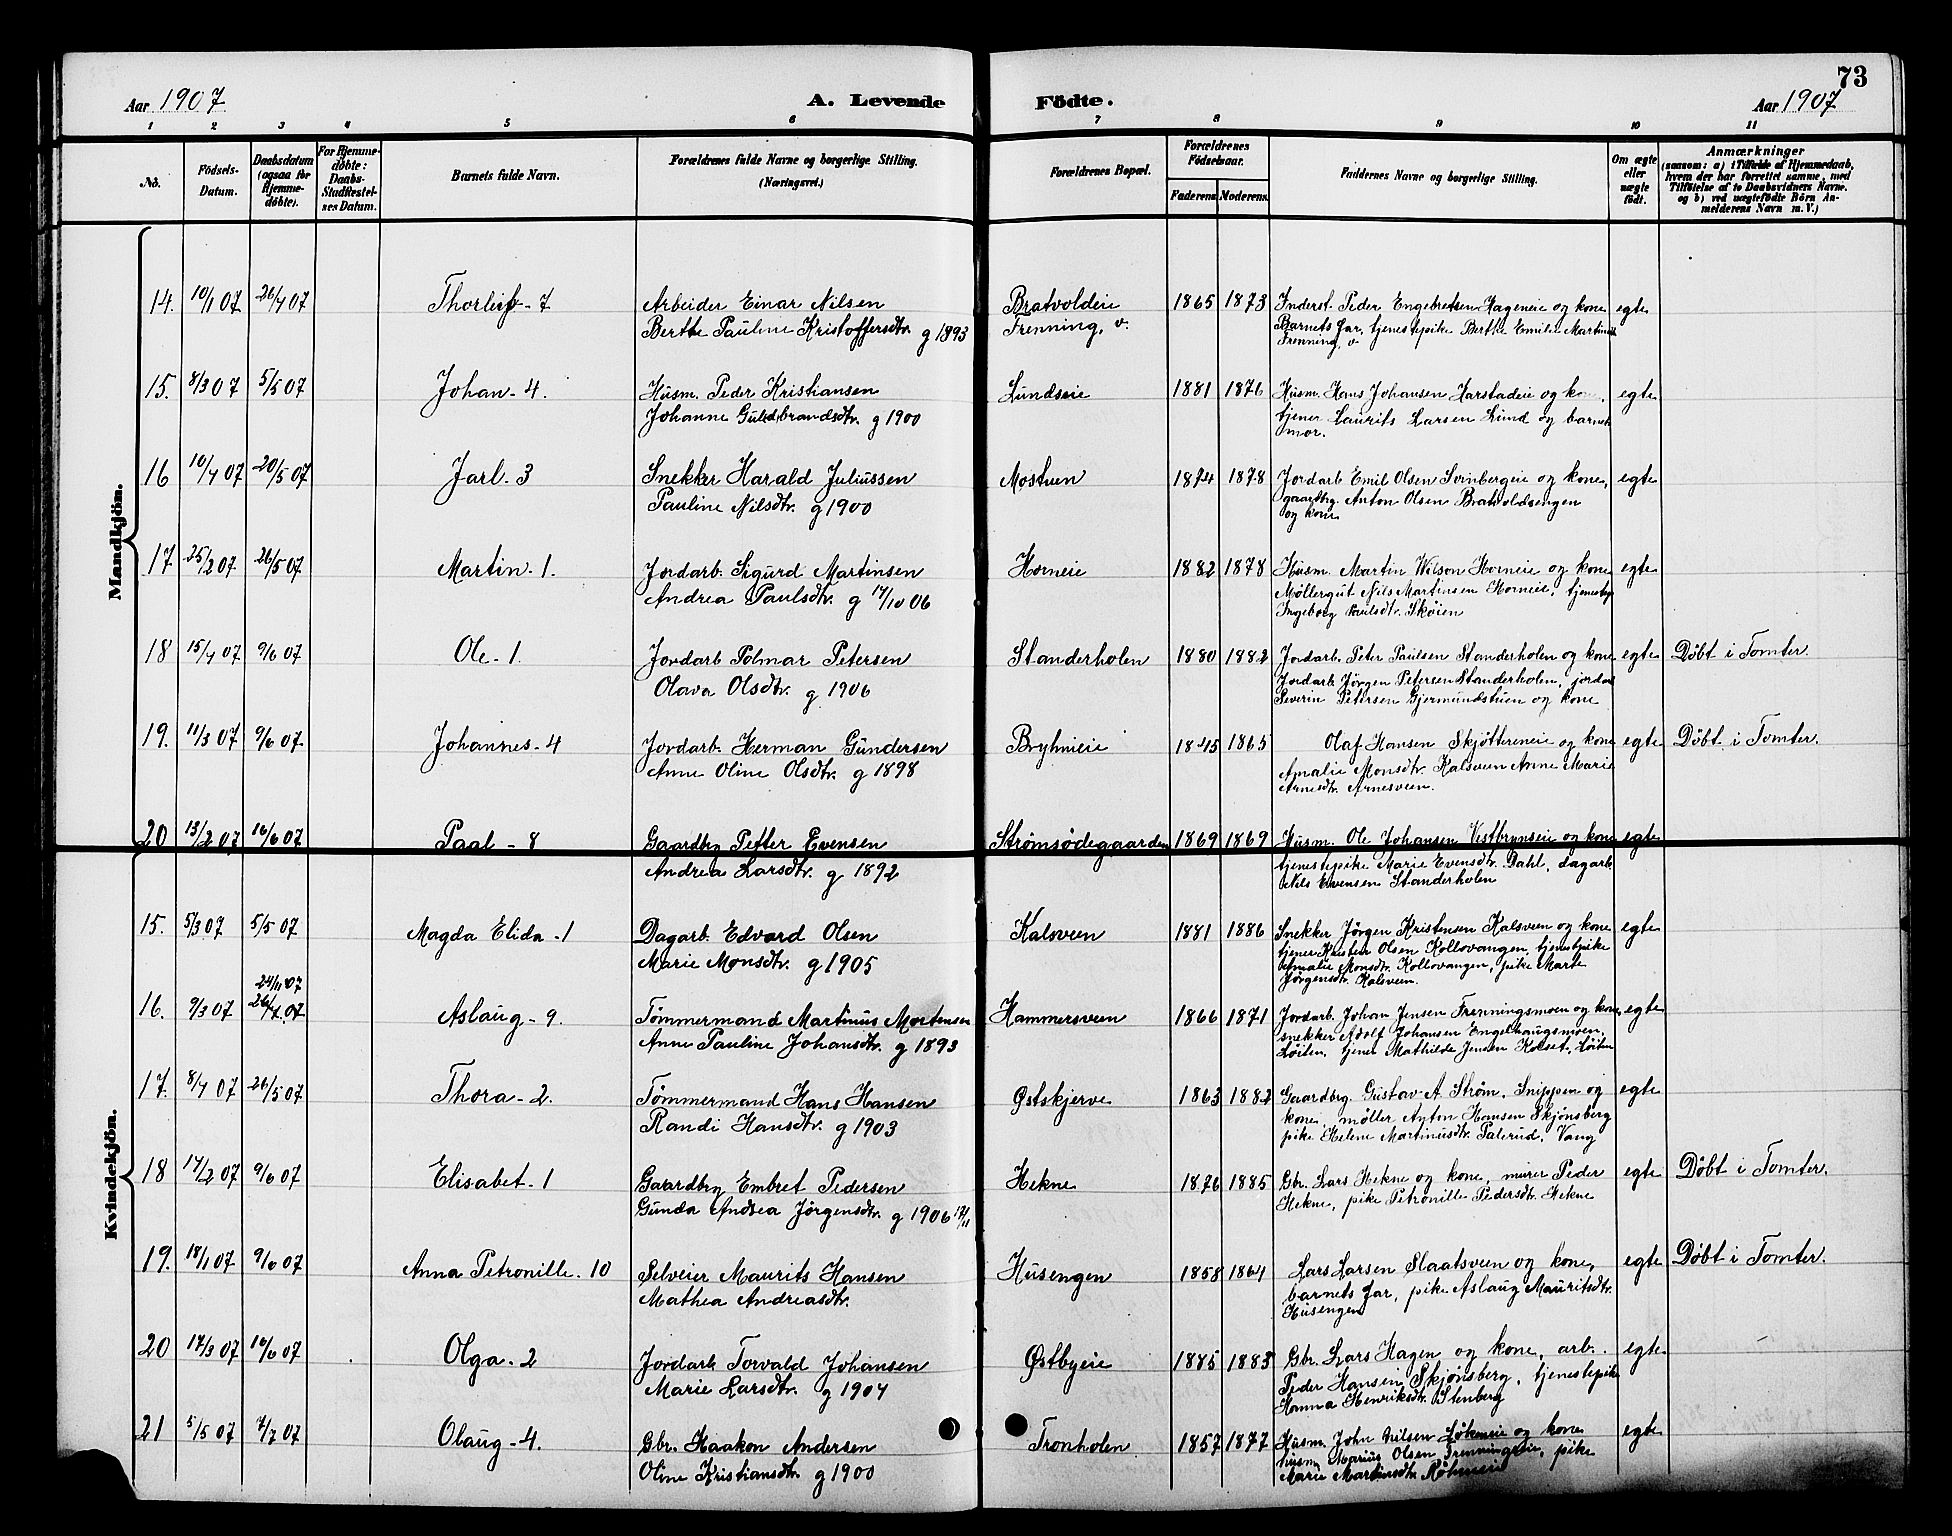 73
Aar 1907 A. Levende Födte. Aar 1907
1 2 3 4 5 6 7 8 9 10 11
No.
Födsels-
Datum.
Daabsdatum
(ogsaa for
Hjemme-
döbte).
For Hjemme-
döbte:
Daabs-
Stadfæstel-
ses Datum.
Barnets fulde Navn.
Forældrenes fulde Navne og borgerlige Stilling.
(Næringsvei.)
Forældrenes Bopæl.
Forældrenes
Födselsaar.
Faderens. Moderens.
Faddernes Navne og borgerlige Stilling.
Om ægte
eller
uægte
födt.
Anmærkninger
(saasom: a) i Tilfælde af Hjemmedaab,
hvem der har forrettet samme, med
Tilföielse af to Daabsvidners Navne.
og b) ved uægtefödte Börn An-
melderens Navn m. V.)
Mandkjön.
14. 10/1 07 26/4 07 Thorleif - 7 Arbeider Einar Nilsen Bratvoldeie 1865 1873 Inderst. Peder Engebretsen Hageneie og kone egte
Berthe Pauline Kristoffersdtr. g 1893 Frenning, v. Barnets far, tjenestepike Berthe Emilie Martinus
Frenning, v.
15. 8/3 07 5/5 07 Johan - 4. Husm. Peder Kristiansen Lundseie 1881 1876 Husm. Hans Johansen Harstadeie og kone, egte
Johanne Guldbrandsdtr. g 1900 tjener Laurits Larsen Lund og barnets
mor.
16 10/4 07 20/5 07 Jarl - 3 Snekker Harald Juliussen Mostuen 1874 1878 Jordarb Emil Olsen Svinbergeie og kone, egte
Pauline Nilsdtr. g 1900 gaardbr. Anton Olsen Bratvoldsengen
og kone
17. 25/2 07 26/5 07 Martin - 1. Jordarb. Sigurd Martinsen Horneie 1882 1878 Husm. Martin Wilson Horneie og kone egte
Andrea Paulsdtr. g 17/10 06 Møllergut Nils Martinsen Horneie, tjenestep
Ingeborg Paulsdtr. Skøien
18 15/4 07 9/6 07 Ole - 1. Jordarb Polmar Petersen Standerholen 1880 1882 Jordarb. Peter Paulsen Standerholen og kone egte Döbt i Tomter.
Olava Olsdtr. g 1906 Jordarb. Jørgen Petersen Standerholen, jordarb
Severin Petersen Gjermundstuen og kone
19. 11/3 07 9/6 07 Johannes - 4 Jordarb. Herman Gundersen Bryhnieie 1845 1865 Olaf Hansen Skjøttereneie og kone egte Döbt i Tomter.
Anne Oline Olsdtr. g 1898 Amalie Monsdtr. Kalsveen Anne Marie
Arnesdtr. Arnesveen.
20 13/2 07 16/6 07 Paal - 8 Gaardbr Petter Evensen Strømsødegaarden 1869 1869 Husm. Ole Johansen Vestbrynseie og kone egte
Andrea Larsdtr. g 1892 tjenestepike Marie Evensdtr. Dahl, dagarb.
Nils Evensen Standerholen
Kvindekjön.
15. 5/3 07 5/5 07 Magda Elida - 1 Dagarb. Edvard Olsen Kalsveen 1881 1886 Snekker Jørgen Kristensen Kalsveen og kone egte
Marie Monsdtr. g 1905 tjener Kristian Olsen Kollovangen, tjenestpike
Amalie Monsdtr. Kollovangen, pike Marte
Jørgensdtr. Kalsveen.
24/11 07
16. 9/3 07 26/4 07 Aslaug - 9. Tømmermand Martinus Mortensen Hammersveen 1866 1871 Jordarb. Johan Jensen Frenningsmoen og kone, egte
Anne Pauline Johansdtr. g 1893 snekker Adolf Johansen Engelhaugsmoen,
Løiten, tjener Mathilde Jensen Kolset, Løiten
17. 8/4 07 26/5 07 Thora - 2. Tømmermand Hans Hansen Østskjerve 1863 1882 Gaardbr. Gustav A. Strøm, Snippen og egte
Randi Hansdtr. g 1903 kone, møller Anton Hansen Skjønsberg
pike Helene Martinusdtr. Palerud, Vang
18 14/2 07 9/6 07 Elisabet - 1 Gaardbr Embret Pedersen Hekne 1876 1885 Gbr. Lars Hekne og kone, murer Peder egte Döbt i Tomter.
Gunda Andrea Jörgensdtr. g 1906 19/11 Hekne, pike Petronille Pedersdtr. Hekne
19. 18/1 07 9/6 07 Anna Petronille - 10 Selveier Maurits Hansen Husengen 1858 1864 Lars Larsen Slaatsveen og kone, egte Döbt i Tomter.
Mathea Andreasdtr. barnets far, pike Aslaug Mauritsdtr.
Husengen
20 17/3 07 16/6 07 Olga - 2 Jordarb Torvald Johansen Østbyeie 1885 1883 Gbr. Lars Hagen og kone, arb. egte
Marie Larsdtr. g 1904 Peder Hansen, Skjønsberg, tjenestepike
Hanna Henriksdtr. Stenberg
21 5/5 07 7/7 07 Olaug - 4. Gbr. Haakon Andersen Tronholen 1857 1877 Husm. John Nilsen Løkneie og kone egte
Oline Kristiansdtr. g 1900 husm. Marius Olsen Frenningseie, pike
Marie Martinsdtr. Røhneeie